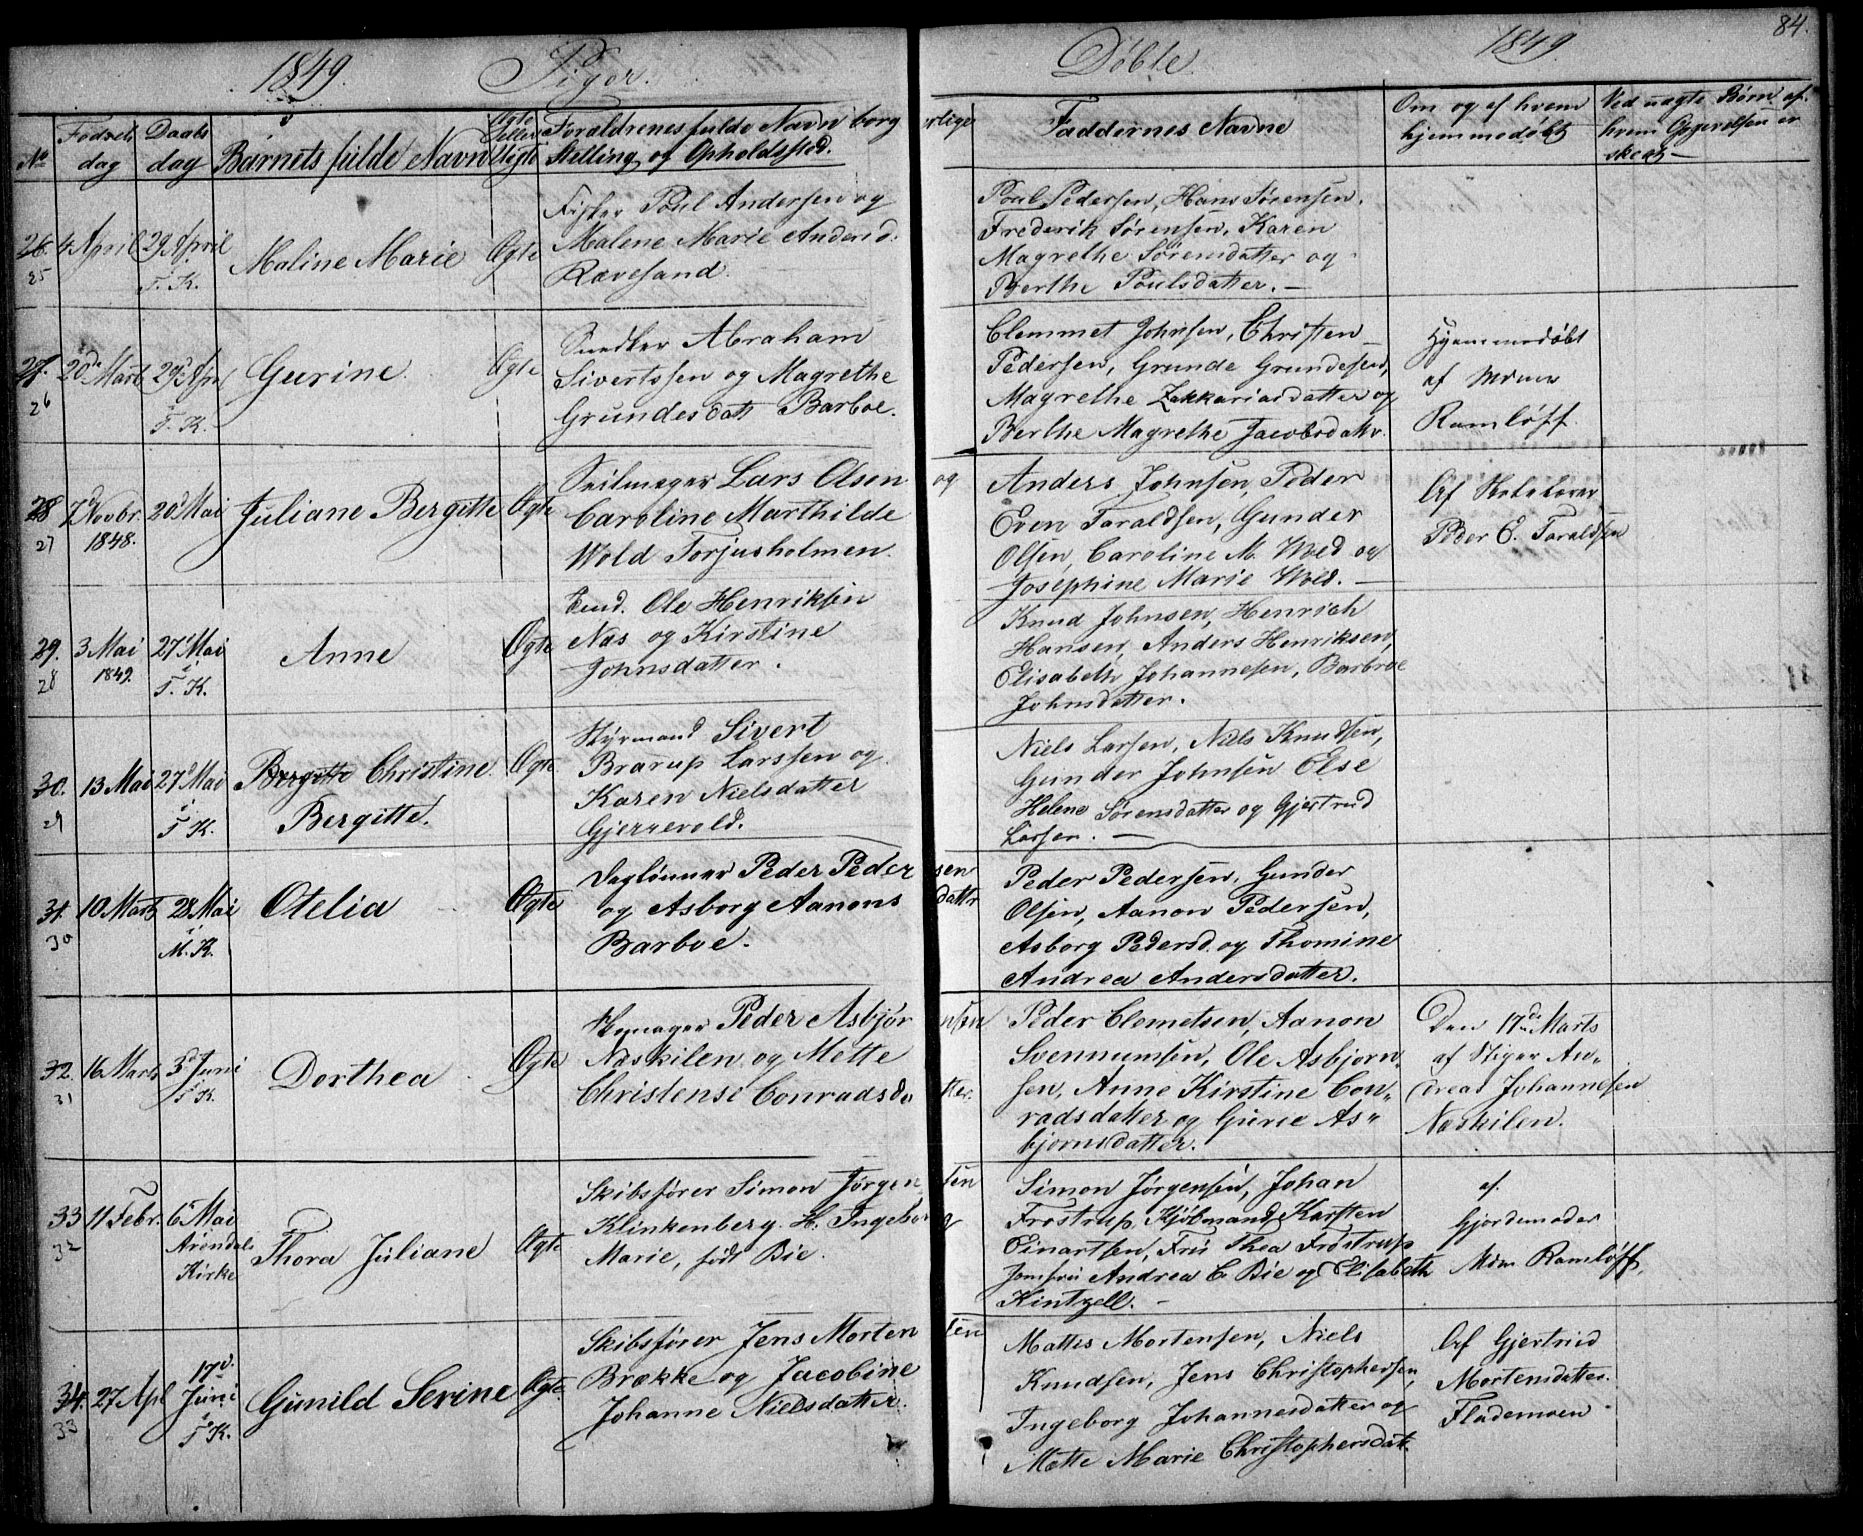 1849. Piger. Døbte 1849. 84.
No Fødsels dag Daabs dag Barnets fulde Navn Ægte eller Uægte Forældrenes fulde Navn borgerlige Stilling og Opholdssted. Faddernes Navne Om og af hvem hjemmedøbt Ved uægte Børn af hvem Opgivelsen er skeet
26. 25 4 April 29 April i T. K. Maline Marie Ægte
Fisker Poul Andersen og
Malene Marie Andersd.
Rævesand.
Poul Pedersen, Hans Sørensen,
Frederik Sørensen, Karen
Magrethe Sørensdatter og
Berthe Poulsdatter.
27. 26 20de Marts 29de Apr i T. K. Gurine Ægte
Snedker Abraham
Sivertssen og Magrethe
Grundesdatt Barboe.
Clemmet Johnsen, Christen
Pedersen, Grunde Grundesen,
Magrethe Zakkariasdatter og
Berthe Magrethe Jacobsdatter.
Hjemmedøbt
af Mdme
Ramløff.
28 27 7d Novbr. 1848. 20d Mai Juliane Bergitte Ægte
Seilmager Lars Olsen og
Caroline Marthilde
Wold Torjusholmen.
Anders Johnsen, Peder
Even Taraldsen, Gunder
Olsen, Caroline M. Wold og
Josephine Marie Wold.
Af Skolelærer
Peder E. Taraldsen
29. 28 3 Mai 1849. 27 Mai i T. K. Anne Ægte
Eiend. Ole Henriksen
Næs og Kirstine
Johnsdatter.
Knud Johnsen, Henrich
Hansen, Anders Henriksen,
Elisabeth Johannesen, Barbroe
Johnsdatter.
30. 29 13 Mai 27d Mai i T K. Bergitte Christine Bergitte. Ægte
Styrmand Sivert
Brarup Larssen og
Karen Nielsdatter
Gjerrevold.
Niels Larsen, Niels Knudsen,
Gunder Johnsen Else
Helene Sørensdatter og Gjertrud
Larsen.
31. 30 10 Marts 28 Mai i M. K. Otelia Ægte
Daglønner Peder Pedersen
og Asborg Aanonsdattr
Barboe.
Peder Pedersen, Gunder
Olsen, Aanon Pedersen,
Asborg Pedersd. og Thomine
Andrea Andersdatter.
32. 31 16 Marts 3d Juni i T K. Dorthea Ægte
Peder Asbjørnsen
Næskilen og Mette
Christense Conradsdatter.
Peder Clemetsen, Aanon
Svennumsen, Ole Asbjørn-
sen, Anne Kirstine Con-
radsdatter og Gurie As-
bjørnsdatter.
Den 17de Marts
af Stiger An-
dreas Johannesen
Næskilen.
33 32 11 Febr. 6te Mai Arendals Kirke Thora Juliane Ægte
Skibsfører Simon Jørgensen
Klinkenberg. H. Ingeborg
Marie, født Bie.
Simon Jørgensen, Johan
Frostrup, Kjøbmand Karsten
Einartsen, Fru Thea Frostrup
Jomfru Andrea C. Bie og Elisabeth
Kintzell.
af.
Gjordemoder
Mdm Ramløff,
34. 33 27 Apl 17d. Juni i T K. Gunild Serine Ægte.
Skibsfører Jens Mortensen
Brække og Jacobine
Johanne Nielsdatter.
Mattis Mortensen, Niels
Knudsen, Jens Christophersen,
Ingeborg Johannesdatter og
Mette Marie Christophersdatt.
Af Gjertrud
Mortensdatter.
Flademoen.